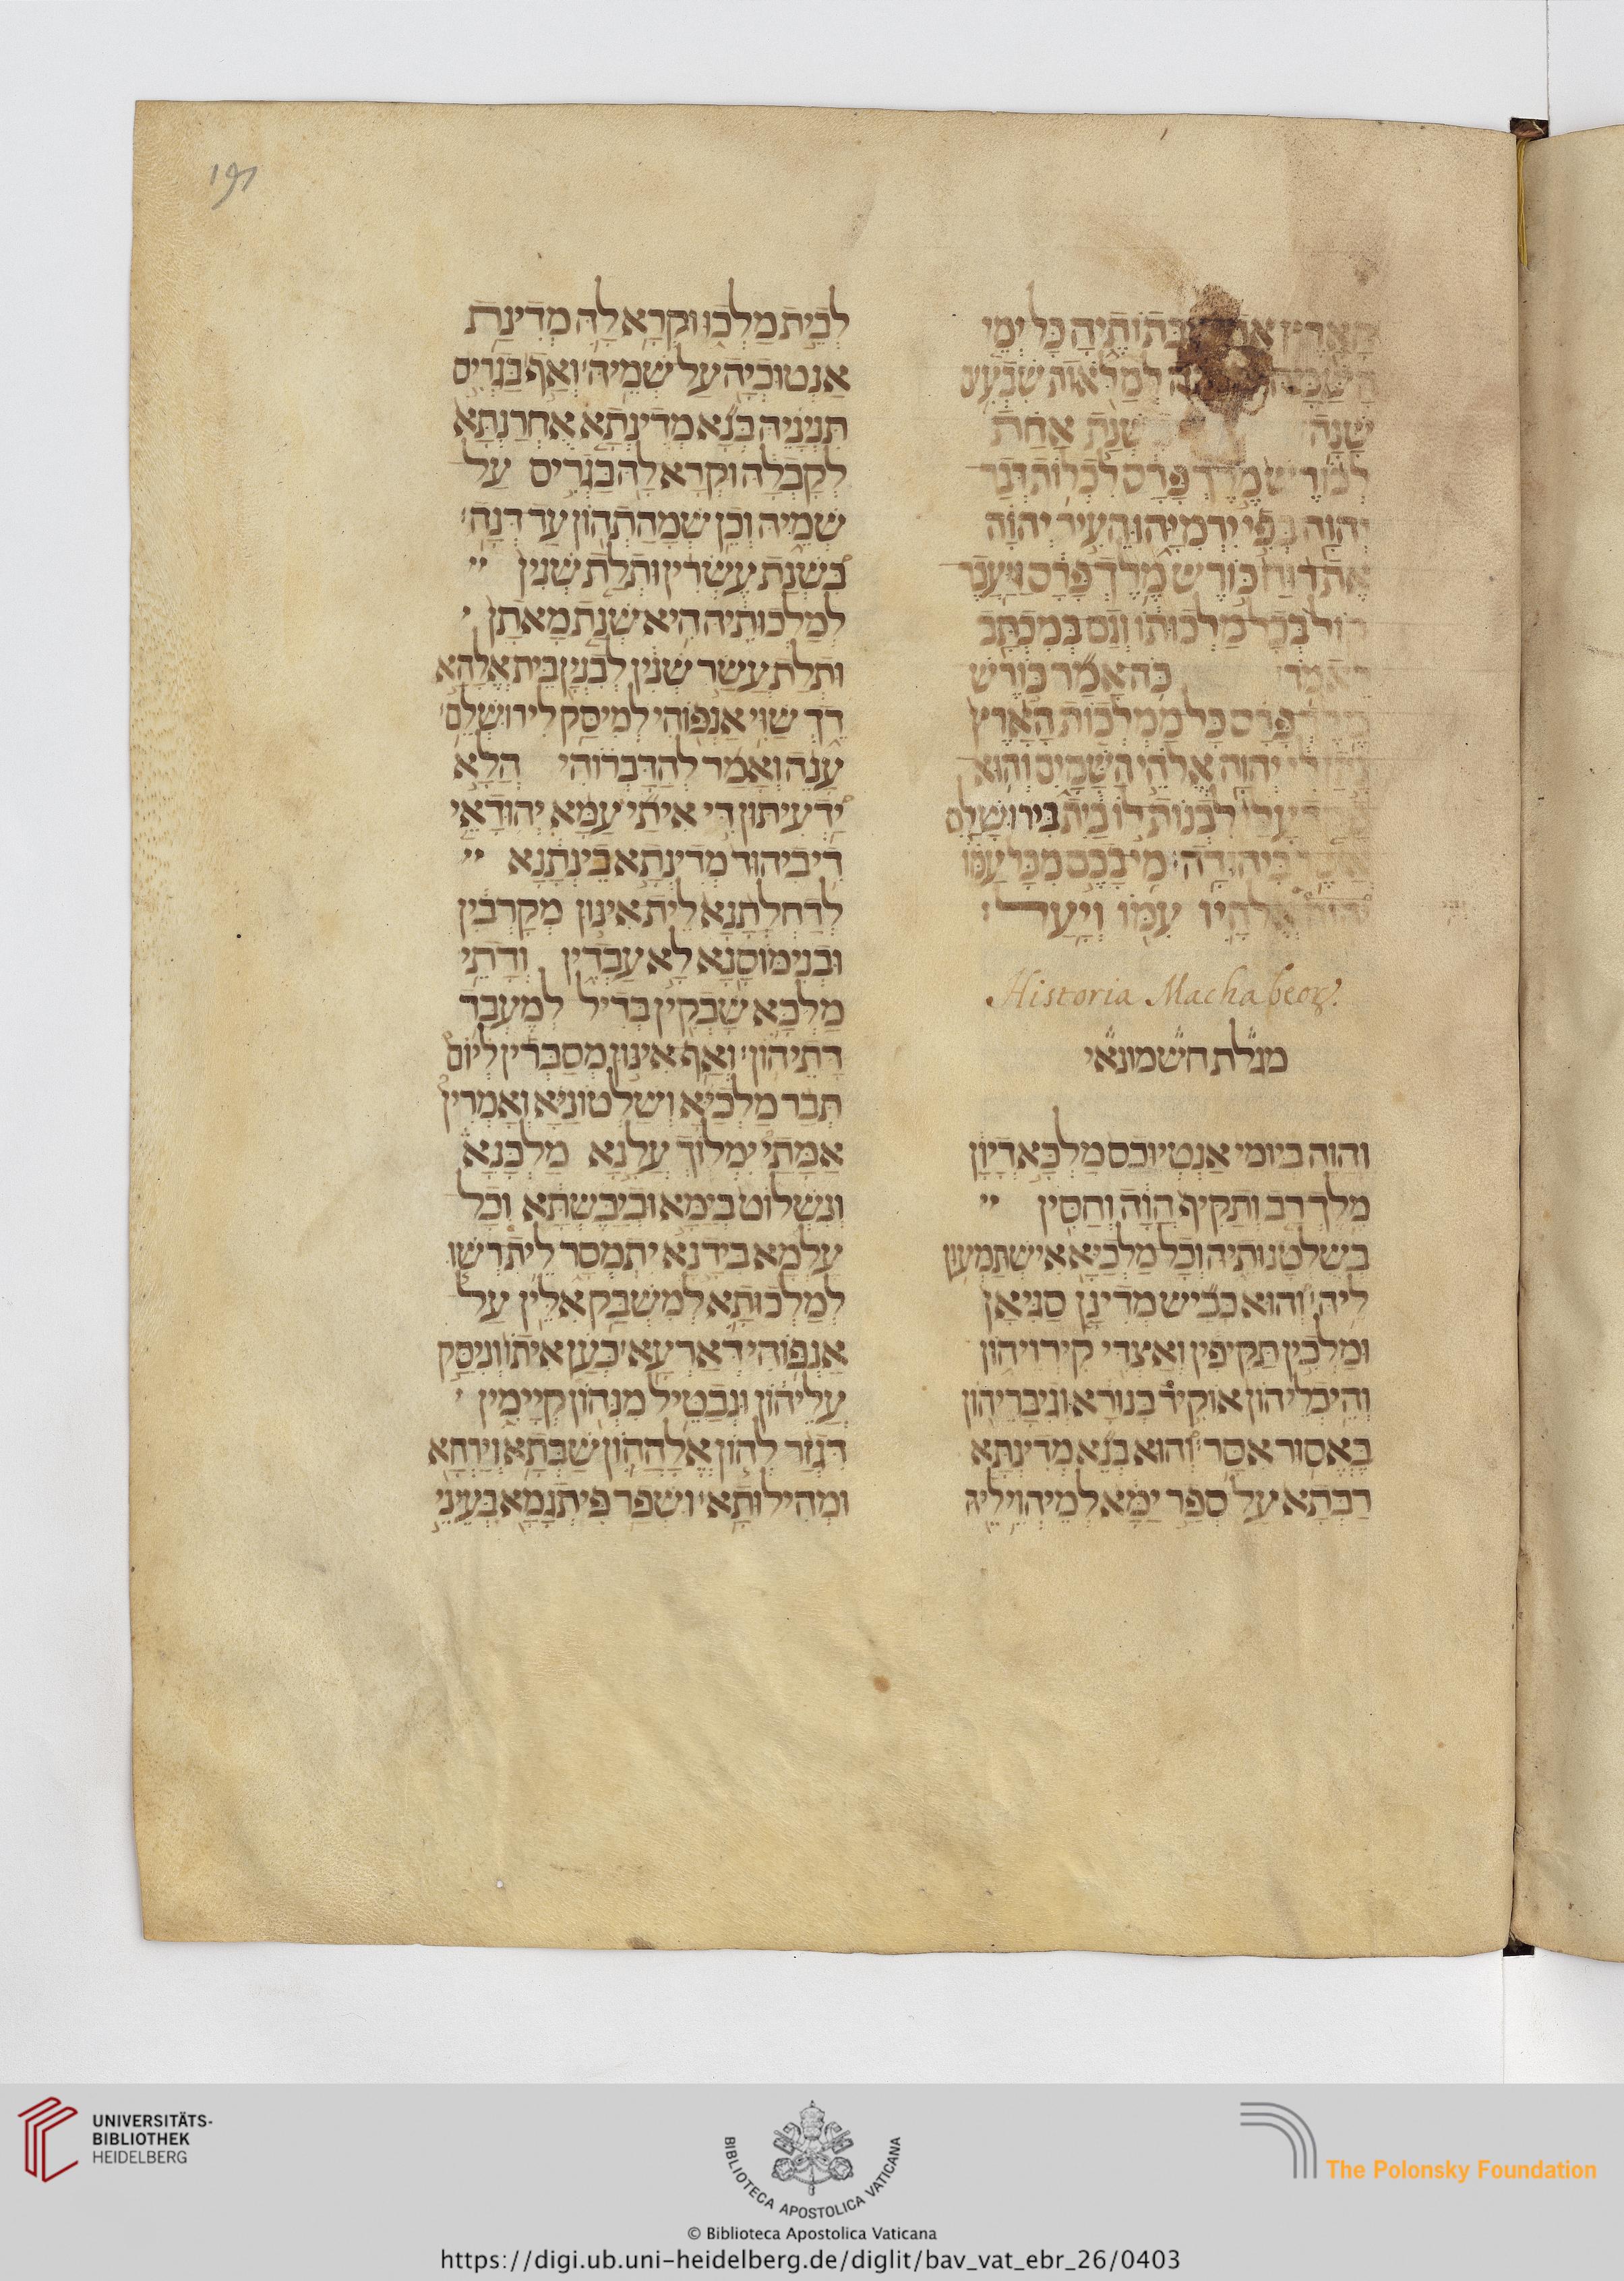 191
הָאָרֶץ אֶת שַׁבְּתוֹתֶיהָ כָּל יְמֵי
לְמַלֹּאות שִׁבְעִים
שָׁנָה שְׁנַת אַחַת
לְכוֹרֶשׁ מֶלֶךְ פָּרַס לִכְלוֹת דְּבַר
יְהוָה בְּפִי יִרְמְיָהוּ הֵעִיר יְהוָה
אֶת רוּחַ כּוֹרֶשׁ מֶלֶךְ פָּרַס וַיַּעֲבֶר
קוֹל בְּכָל מַלְכוּתוֹ וְגַם בְּמִכְתָּב
לֵאמֹר כֹּה אָמַר כּוֹרֶשׁ
מֶלֶךְ פָּרַס כָּל מַמְלְכוֹת הָאָרֶץ
נָתַן לִי יְהוָה אֱלֹהֵי הַשָּׁמַיִם וְהוּא
עָלַי לִבְנוֹת לוֹ בַיִת בִּירוּשָׁלִַם
אֲשֶׁר בִּיהוּדָה מִי בָכֶם מִכָּל עַמּוֹ
יְהוָה אֱלֹהָיו עִמּוֹ וְיָעַל׃
Historia Machabeoꝝ.
מגלת חשמונאי
והוה ביומי אַנְטִיוּכַס מַלְכָּא דְיָוָן
מֶלֶךְ רַב וְתַקִּיף הֲוָה וְחַסִּין
בְּשָׁלְטָנוּתֵיהּ וְכָל מַלְכַיָּא אִישְׁתַּמְעוּן
לֵיהּ וְהוּא כְבַישׁ מְדִינָן סַגִּיאָן
וּמַלְכִין תַּקִּיפִין וְאַצְדִּי קִירְוֵיהוֹן
וְהֵיכְלֵיהוֹן אוֹקֵיד בְּנוּרָא וְגִיבָּרֵיהוֹן
בֶּאֱסוּר אֲסַר וְהוּא בְנָא מְדִינְתָּא
רַבְּתָא עַל סְפַר יַמָּא לְמֵיהֱוֵי לֵיהּ
לְבֵית מַלְכוּ וּקְרָא לָהּ מְדִינַת
אַנְטוֹכְיָה עַל שְׁמֵיהּ וְאַף בַּגְרִיס
תִּנְיָנֵיהּ בְּנָא מְדִינְתָּא אֻחְרַנְתָּא
לְקָבְלַהּ וּקְרָא לָהּ בַּגְרִיס עַל
שְׁמֵיהּ וְכֵן שְׁמָהַתְהוֹן עַד דְּנָה
בִּשְׁנַת עֶשְׂרִין וּתְלַת שְׁנִין
לְמַלְכוּתֵיהּ הִיא שְׁנַת מָאתַן
וּתְלַת עֲשַׂר שְׁנִין לְבִנְיַן בֵּית אֱלָהָא
דֵּךְ שַׁוִּי אַנְפּוֹהִי לְמִיסַּק לִירוּשְׁלֵם
עָנֵה וְאָמַר לְהַדָּבְרוֹהִי הֲלָא
יְדַעִיתּוּן דִּי אִיתַי עַמָּא יְהוּדָאֵי
דִּי בִיהוּד מְדִינְתָּא בֵּינָתַנָא
לְדַחְלְתָנָא לֵית אִינּוּן מְקָרְבִין
וּבְנִימוֹסָנָא לָא עָבְדִין וְדָתֵי
מַלְכָּא שָׁבְקִין בְּדִיל לְמֶעְבַּד
דָּתֵיהוֹן וְאַף אִינּוּן מְסַבְּרִין לְיוֹם
תְּבַר מַלְכַיָּא וְשִׁלְטוֹנַיָּא וְאָמְרִין
אֵמָתַי יִמְלוֹךְ עֲלָנָא מַלְכָּנָא
וְנִשְׁלוֹט בְּיַמָּא וּבְיַבֶּשְׁתָּא וְכָל
עָלְמָא בִּידַנָא יִתְמְסַר לֵית רְשׁוּ
לְמַלְכוּתָא לְמִשְׁבַּק אִלֵּין עַל
אַנְפּוֹהִי דְאַרְעָא כְּעַן אִיתוֹ וְנִיסַּק
עֲלֵיהוֹן וּנְבַטֵּיל מִנְּהוֹן קְיָימִין
דִּגְזַר לְהוֹן אֱלָהָהוֹן שַׁבְּתָא וְיַרְחָא
וּמְהִילוּתָא וּשְׁפַר פִּיתְגָמָא בְּעֵינֵי
UNIVERSITÄTS-
BIBLIOTHEK
HEIDELBERG
BIBLIOTECA APOSTOLICA VATICANA
© Biblioteca Apostolica Vaticana
The Polonsky Foundation
https://digi.ub.uni-heidelberg.de/diglit/bav_vat_ebr_26/0403